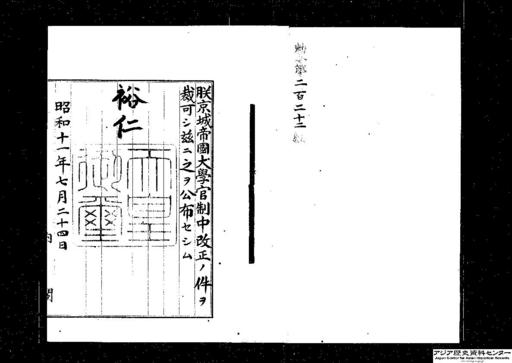 勅令第二百二十二號
朕京城帝國大學官制中改正ノ件ヲ
裁可シ茲ニ之ヲ公布セシム
裕仁
天皇御璽
昭和十一年七月二十四日
内閣
アジア歴史資料センター
Japan Center for Asian Historical Records